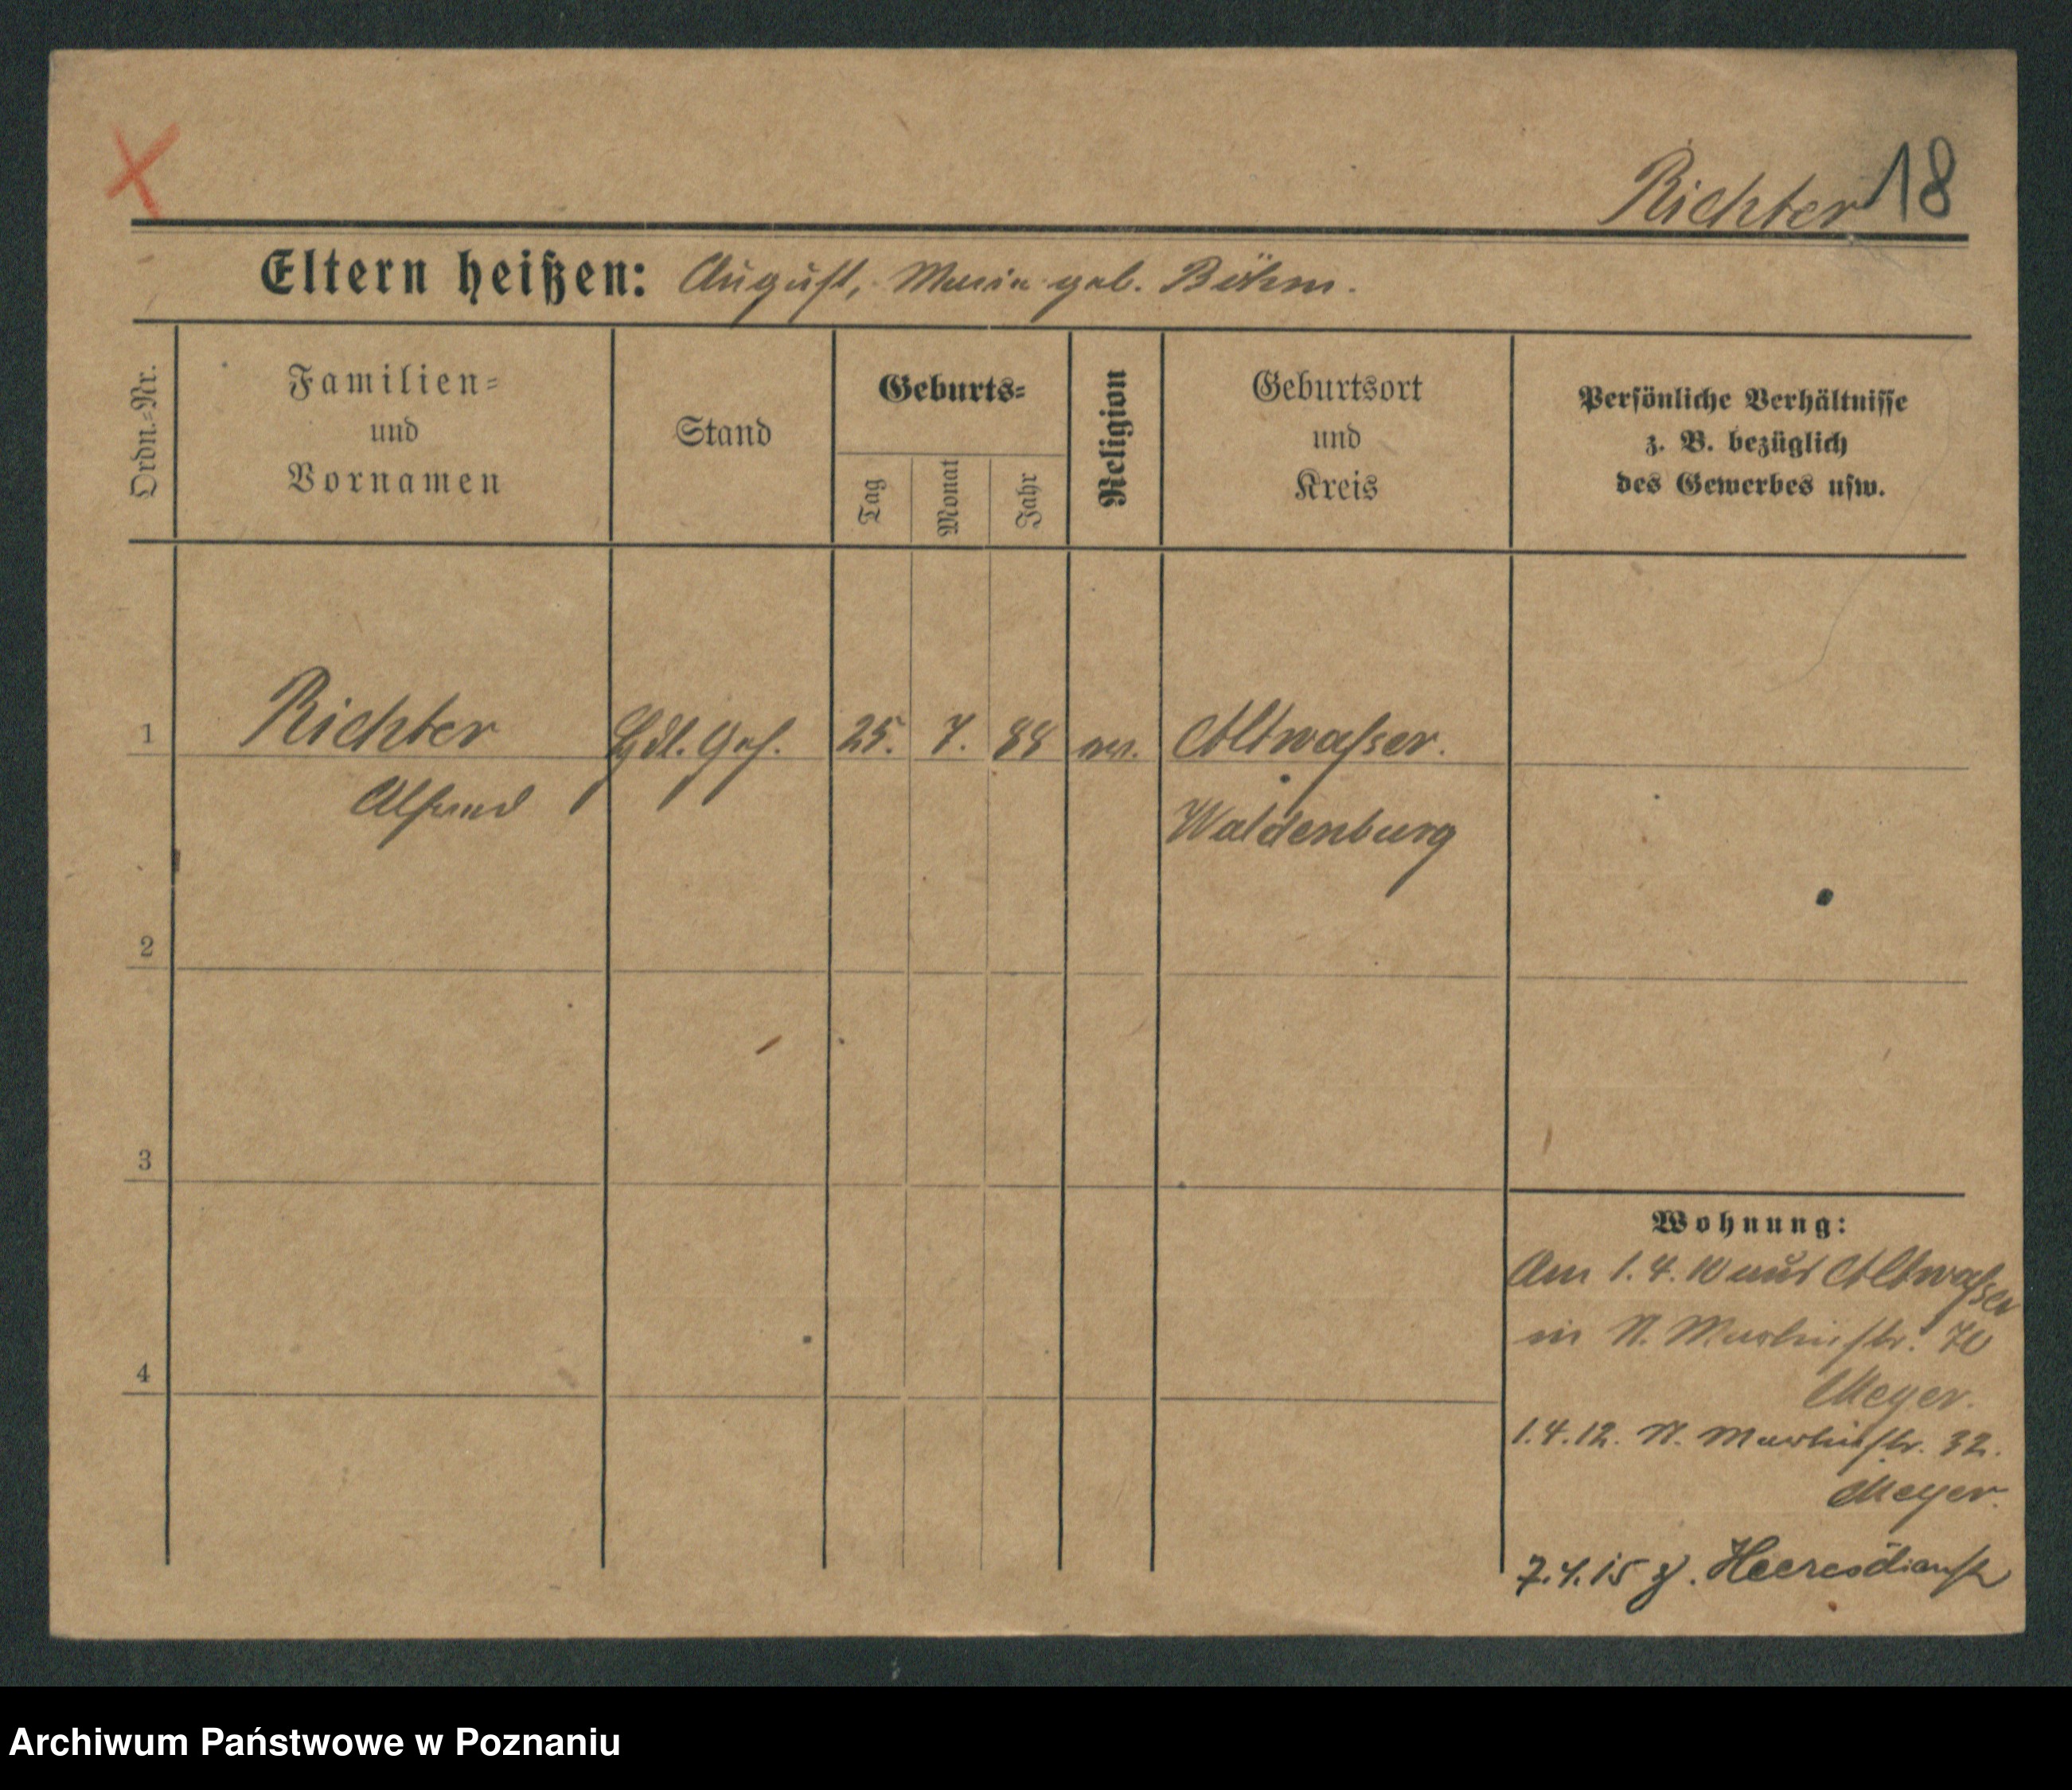 Richter 18
Eltern heißen: August, Maria geb. Böhm.
Ordn.-Nr.
Familien-
und
Vornamen
Stand
Geburts-
Tag
Monat
Jahr
Religion
Geburtsort
und
Kreis
Persönliche Verhältnisse
z. B. bezüglich
des Gewerbes usw.
1 Richter Hdl. Geh. 25. 7. 88 ev. Altwasser.
Alfred Waldenburg
2
3
4
Wohnung:
Am 1.4.10 aus Altwasser
in N. Martinstr. 70
Meyer.
1.4.12. N. Martinstr. 32.
Meyer.
7.4.15 z. Heeresdienst
Archiwum Państwowe w Poznaniu